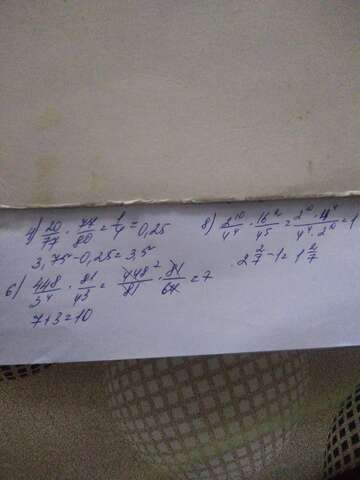 4) 20/77 · 77/80 = 1/4 = 0,25
3,75 - 0,25 = 3,5
6) 448/3⁴ · 81/4³ = 448/81 · 81/64 = 7
7+3=10
8) 2¹⁰/4⁴ · 16²/4⁵ = 2¹⁰ · 4⁴/4⁴ · 2¹⁰ = 1
2 2/7 - 1 = 1 2/7